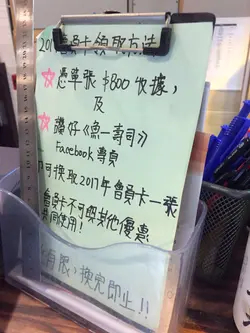 會員卡領取方法
憑單張 $800 收據,
及
讚好《魚一壽司》
Facebook 專頁
可換取2017年會員卡一張
會員卡不可與其他優惠
同使用!
有限,換完即止!!